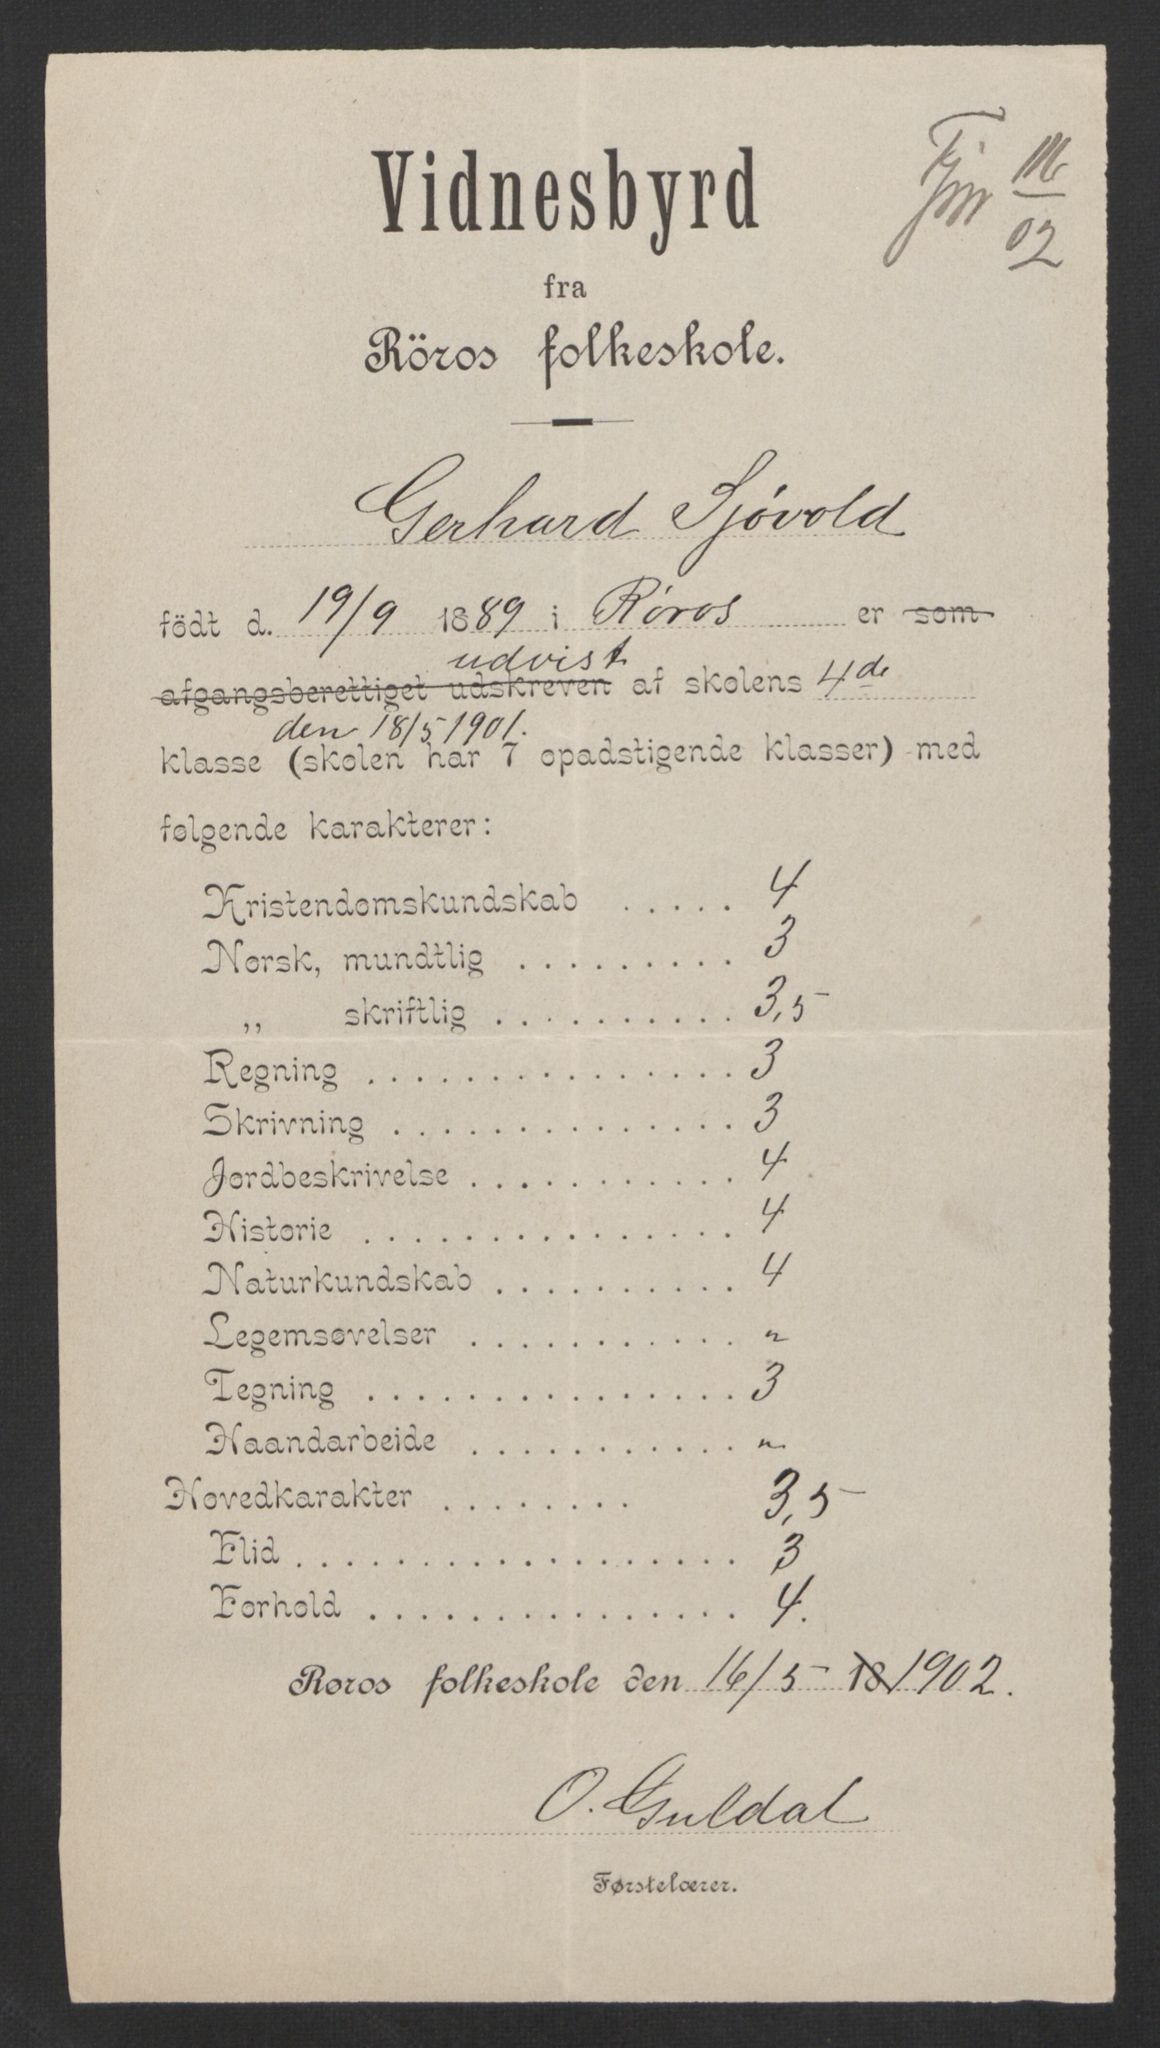 Vidnesbyrd
fra
Röros folkeskole.
Gerhard Sjóvold
födt d. 19/9 1889 i Róros er som
udvist
afgangsberettiget udskreven af skolens 4de
den 18/5 1901.
klasse (skolen har 7 opadstigende klasser) med
følgende karakterer:
Kristendomskundskab ..... 4
Norsk, mundtlig ......... 3
„ skriftlig .......... 3,5
Regning ............... 3
Skrivning .............. 3
Jordbeskrivelse ........... 4
Historie ............... 4
Naturkundskab .......... 4
Legemsøvelser ........... "
Tegning ............... 3
Haandarbeide ........... "
Hovedkarakter ........ 3,5
Flid .................. 3
Forhold ............... 4.
Roros folkeskole den 16/5 18 1902.
O. Guldal
Førstelærer.
02